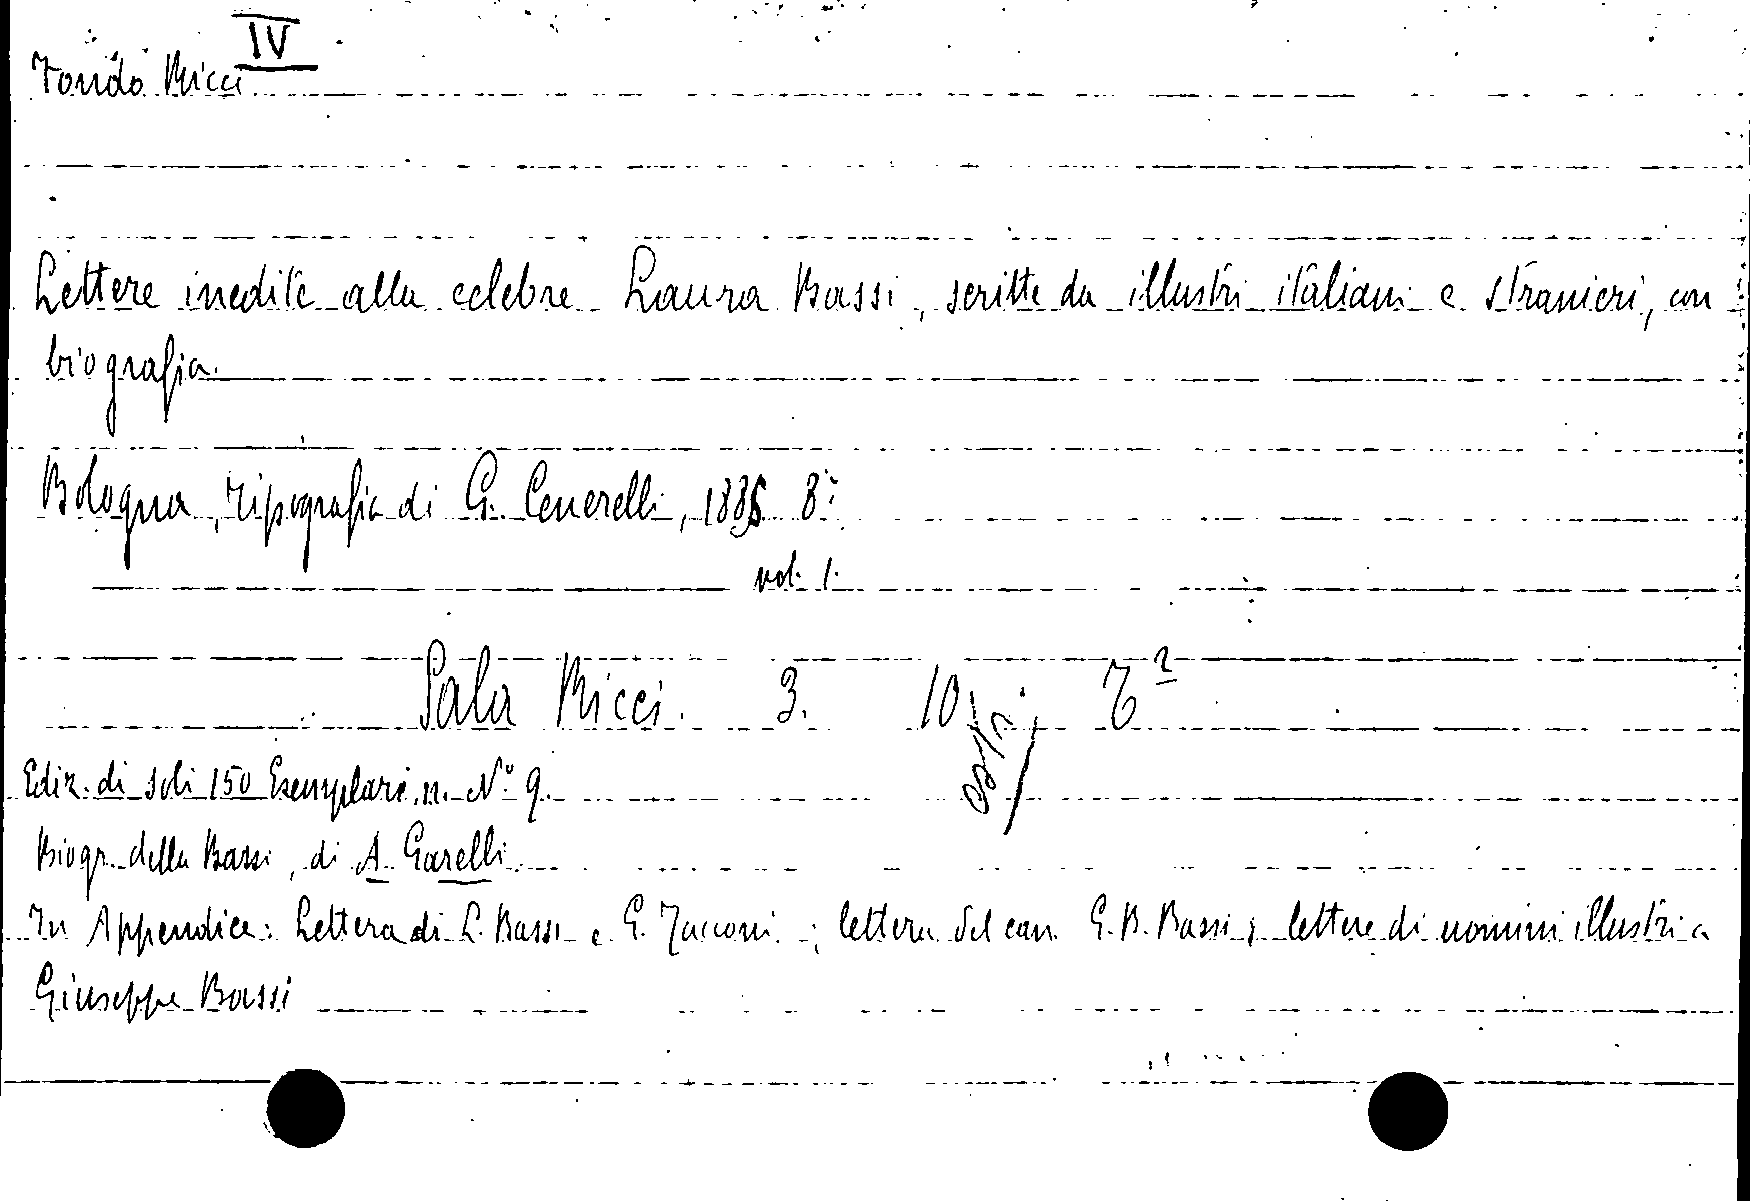 IV
Fondo Ricci
Lettere inedite alla celebre Laura Bassi, scritte da illustri italiani e stranieri, con
biografia.
Bologna, Tipografia di G. Cenerelli, 1885 8°
vol. 1.
Sala Ricci. 3. 10 7²
Ediz. di soli 150 Esemplari. n. N° 9.
Biogr. della Bassi, di A. Garelli.
In Appendice: Lettera di L. Bassi e G. Zacconi; lettera del can. G. B. Bassi; lettere di uomini illustri a
Giuseppe Bassi